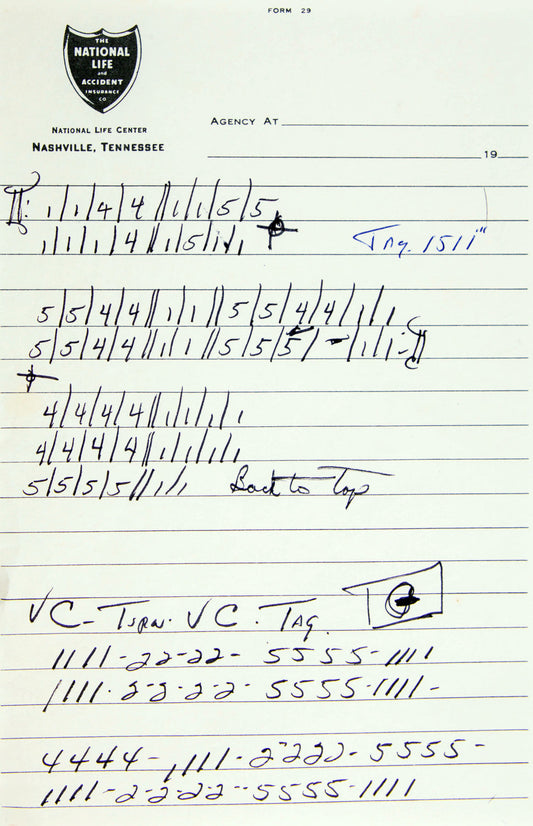 FORM 29
THE
NATIONAL
LIFE
and
ACCIDENT
INSURANCE
CO
NATIONAL LIFE CENTER
NASHVILLE, TENNESSEE
AGENCY AT
19
1/1/4/4//1/1/5/5
1/1/1/4//1/5/1/1
Tag. 1511"
5/5/4/4//1/1//5/5/4/4/1/1
5/5/4/4//1/1//5/5/5/-/1/1:
4/4/4/4//1/1/1/1
4/4/4/4//1/1/1/1
5/5/5/5//1/1 Back to Top
VC- Turn. VC. TAG.
1111-22-22- 5555-1111
1111-2-2-2-2- 5555-1111-
4444-1111-2222-5555-
1111-2-2-2-2-5555-1111